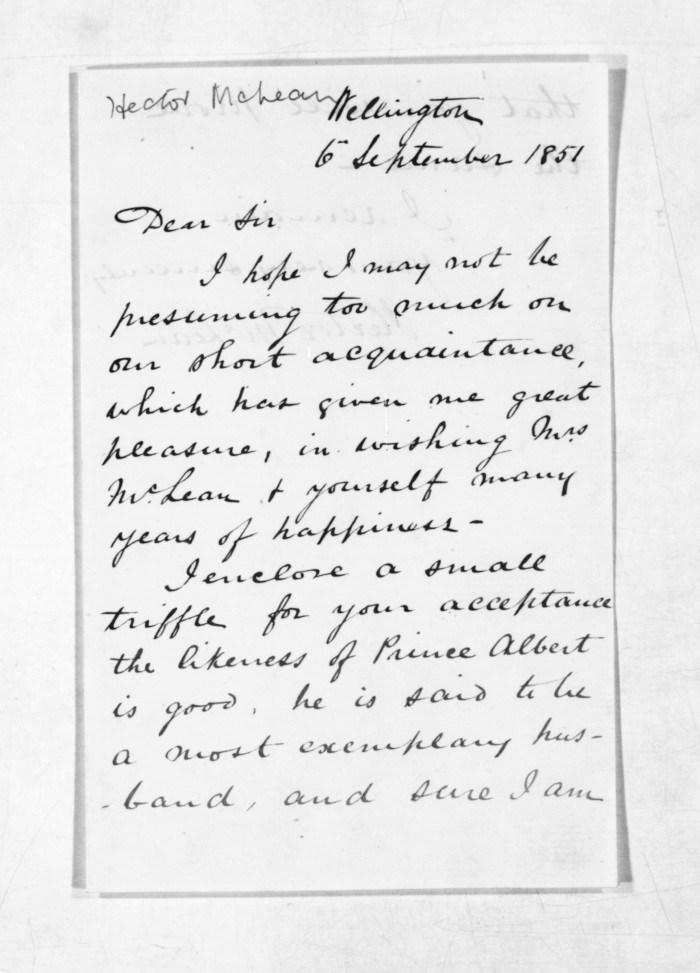 Hector McLean
Wellington
6th September 1851
Dear Sir
I hope I may not be
presuming too much on
our short acquaintance,
which has given me great
pleasure, in wishing Mrs
McLean & yourself many
years of happiness -
I enclose a small
triffle for your acceptance
the likeness of Prince Albert
is good, he is said to be
a most exemplary hus-
-band, and sure I am